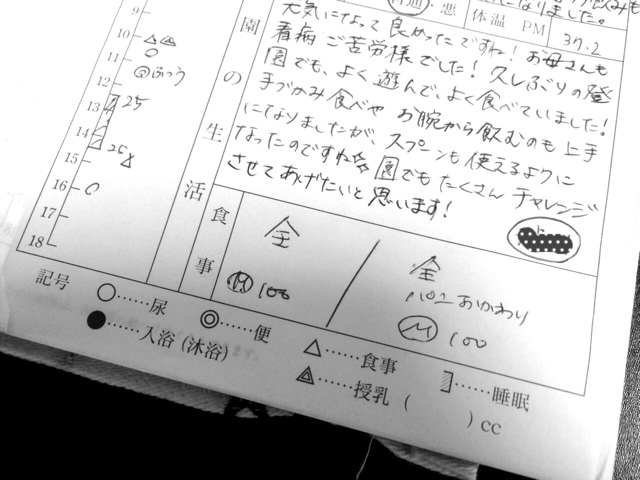 になりました。
普通・悪
体温 PM 37.2
元気になって良かったですね！お母さんも
看病ご苦労様でした！久しぶりの登
園でも、よく遊んで、よく食べていました！
手づかみ食べや お腕から飲むのも上手
になりましたが、スプーンも使えるように
なったのですね☆園でもたくさん チャレンジ
させてあげたいと思います！
園の生活
食事
全
M 100
全
おかわり
M 100
9
10
11
12 ふつう
13 25
14
15 25
16
17
18
記号
○……尿
◎……便
△……食事
……睡眠
●……入浴（沐浴）
……授乳（ ）cc